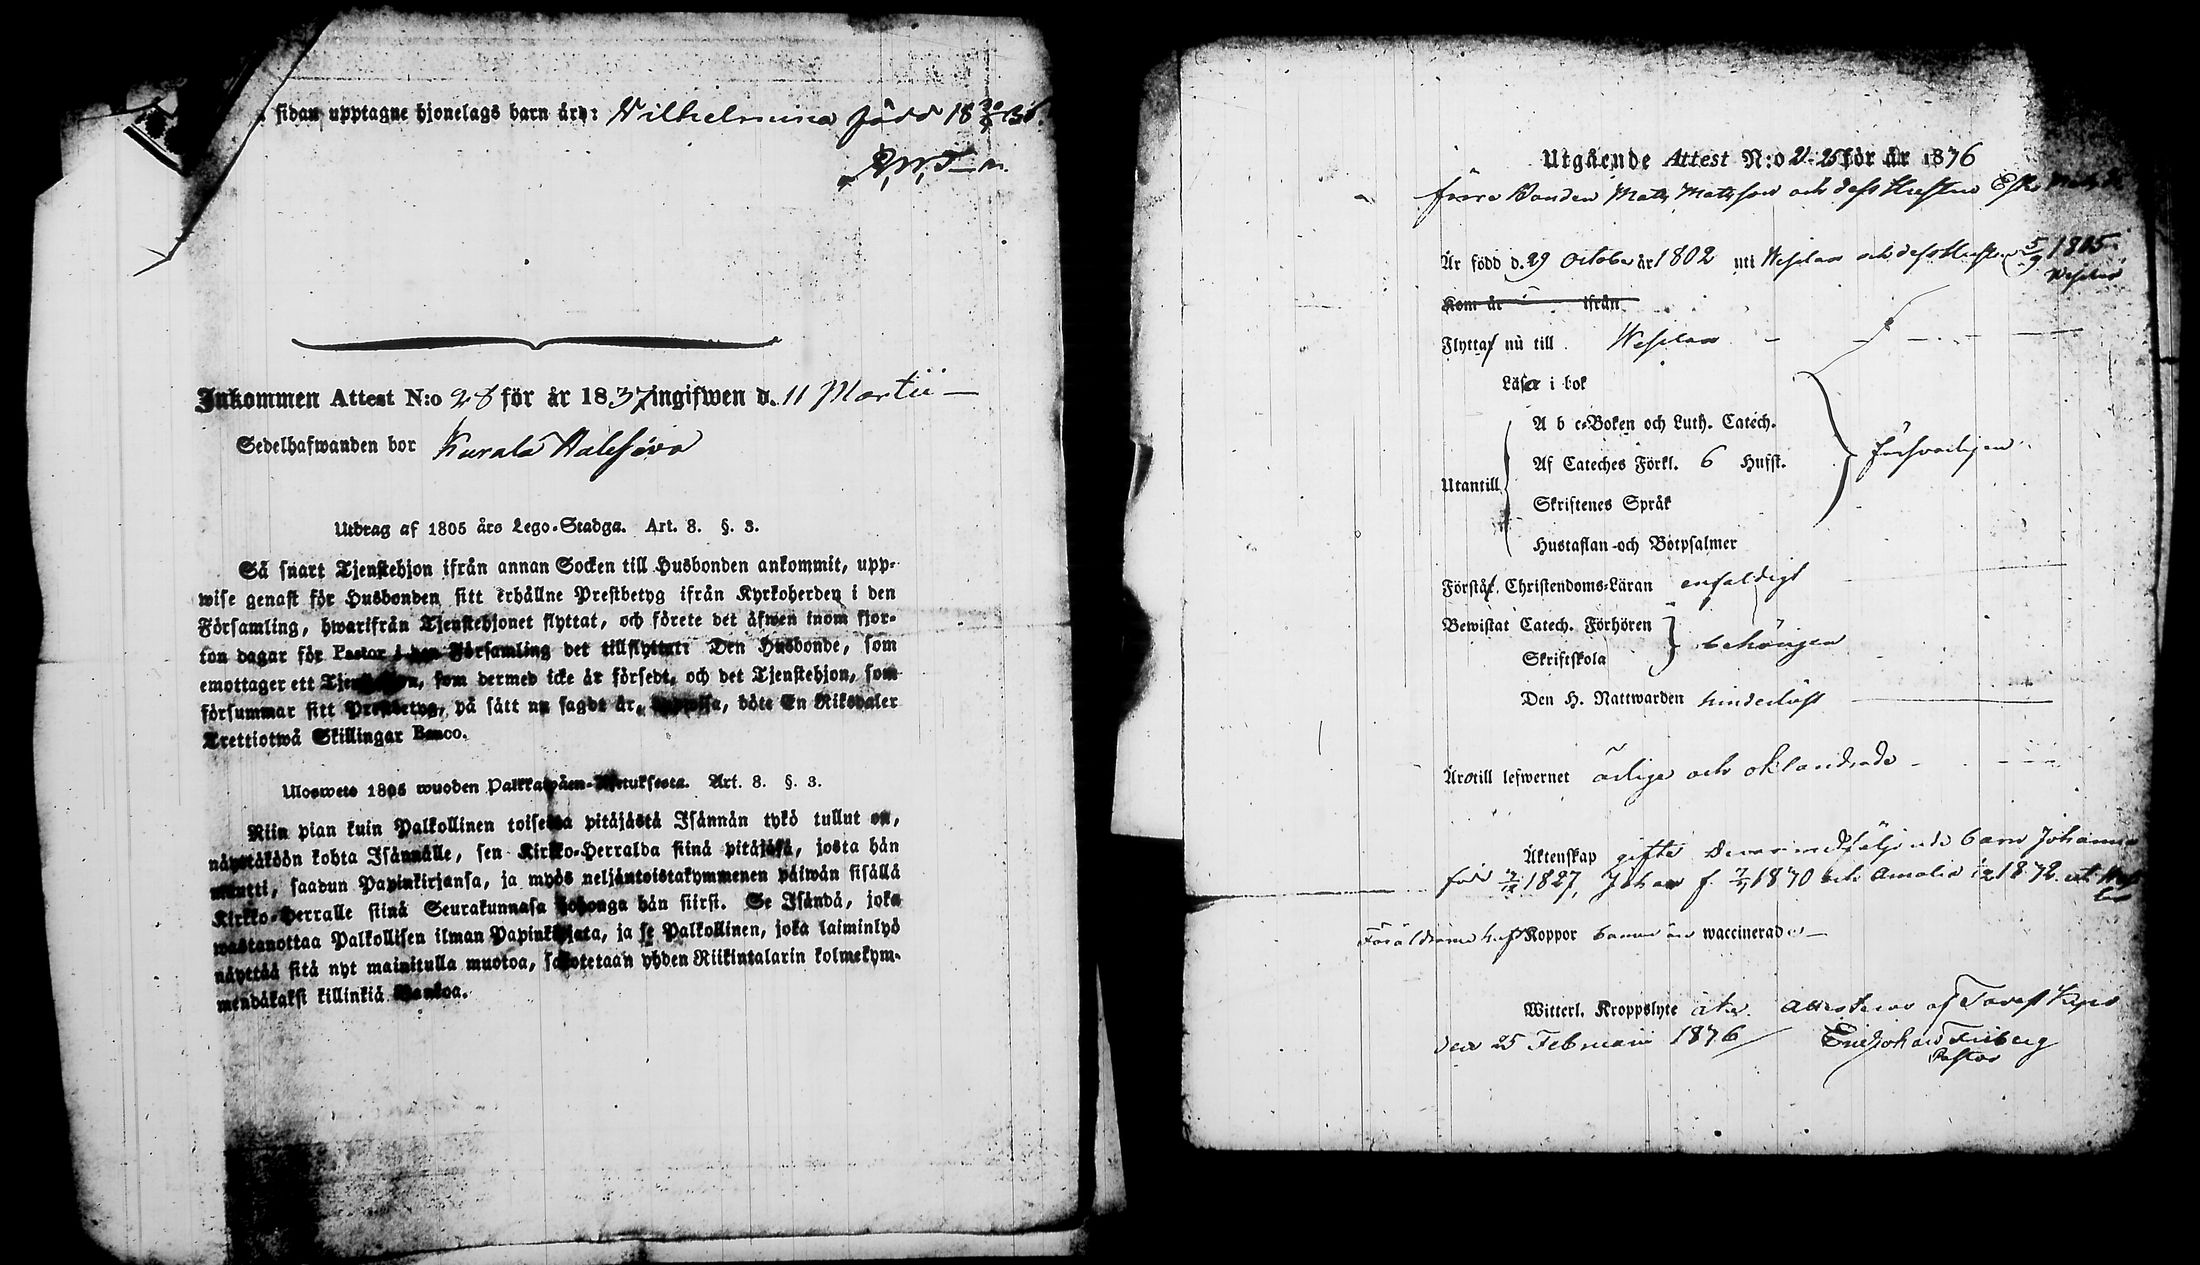 sidan upptagne hjonelags barn äro: Wilhelmina född 18 30/9 36.
Inkommen Attest N:o 28 för år 1837 ingifwen d. 11 Martii —
Sedelhafwanden bor Kurala
Utdrag af 1805 års Lego-Stadga. Art. 8. §. 3.
Så snart Tjenstehjon ifrån annan Socken till Husbonden ankommit, upp-
wise genast för Husbonden sitt erhållne Prestbetyg ifrån Kyrkoherden i den
Församling, hwarifrån Tjenstehjonet flyttat, och förete det äfwen inom fjor-
ton dagar för Pastor i den Församling det tillflyttat: Den Husbonde, som
emottager ett Tjenstehjon, som dermed icke är försedt, och det Tjenstehjon, som
försummar sitt Prestbetyg, på sätt nu sagdt är, uppwisa, böte En Riksdaler
Trettiotwå Skillingar Banco.
Ulosweto 1805 wuoden Palkkawäen-Asetuksesta. Art. 8. §. 3.
Niin pian kuin Palkollinen toisesta pitäjästä Isännän tykö tullut on,
näyttäköön kohta Isännälle, sen Kirkko-Herralda siinä pitäjäsä, josta hän
muutti, saadun Papinkirjansa, ja myös neljäntoistakymmenen päiwän sisällä
Kirkko-Herralle siinä Seurakunnasa hohonga hän siirsi. Se Isändä, joka
wastanottaa Palkollisen ilman Papinkirjata, ja se Palkollinen, joka laiminlyö
näyttää sitä nyt mainitulla muotoa, sakotetaan yhden Riikintalarin kolmekym-
mendäkaksi killinkiä Bankoa.
Utgående Attest N:o 21-25 för år 1876
förre Bonden Matts Mattsson och dess Hustru
Är född d. 29 October år 1802 uti Wesilax och dess Hustru 5/9 1805.
Wesilax
Kom år ifrån
Flytta nu till Wesilax
Läsa i bok
A b c-Boken och Luth. Catech.
Af Cateches Förkl. 6 Hufst.
försvarligen
Utantill
Skriftenes Språk
Hustaflan och Botpsalmer
Förstå Christendoms-Läran enfaldigt
Bewistat Catech. Förhören
behörigen
Skriftskola
Den H. Nattwarden hinderlöst
Äro till lefwernet ärlige och oklandrade
Äktenskap gifte följande barn Johanna
född 1827, Johan f. 1870 och Amalia 1872
Föräldrarne haft Koppor barnen äro waccinerade
Witterl. Kroppslyte Attesteras af Tavastkyro
den 25 Februarii 1876 Eric Johan Friberg
Pastor